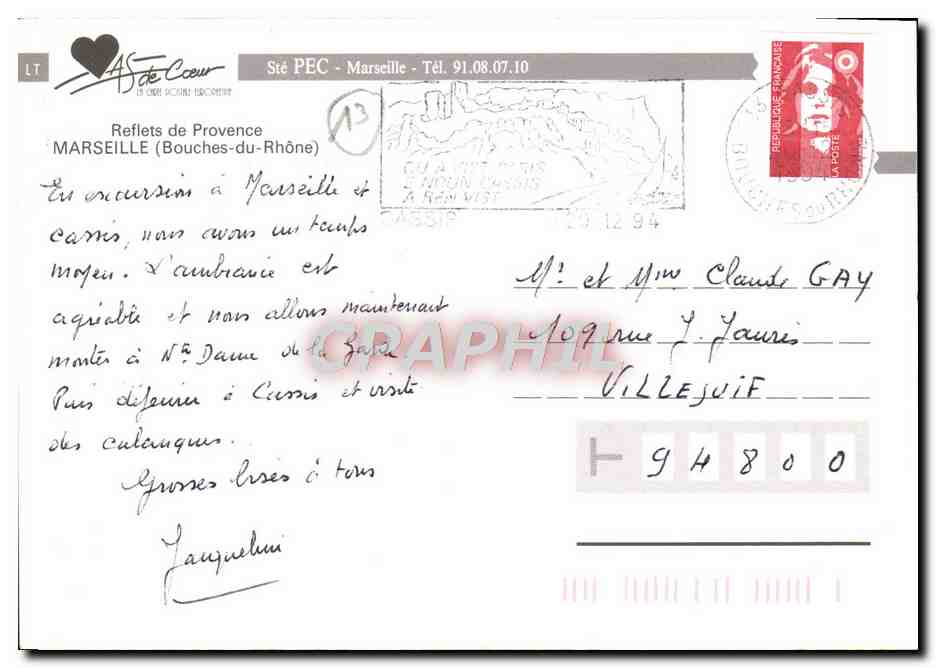 LT
AS de Cœur
LA CARTE POSTALE EUROPEENNE
Sté PEC - Marseille - Tél. 91.08.07.10
13
Reflets de Provence
MARSEILLE (Bouches-du-Rhône)
QU A VIST PARIS
E NOUN CASSIS
A REN VIST
CASSIS
29.12.94
REPUBLIQUE FRANÇAISE
LA POSTE
BOUCHES DU RHONE
En excursion à Marseille et
Cassis, nous avons un temps
moyen. L'ambiance est
agréable et nous allons maintenant
monter à Nte Dame de la Garde
Puis déjeuner à Cassis et visite
des calanques.
Grosses bises à tous
Jacqueline
Mr et Mme Claude GAY
109 rue J. Jaurès
VILLEJUIF
94800
CPAPHIL